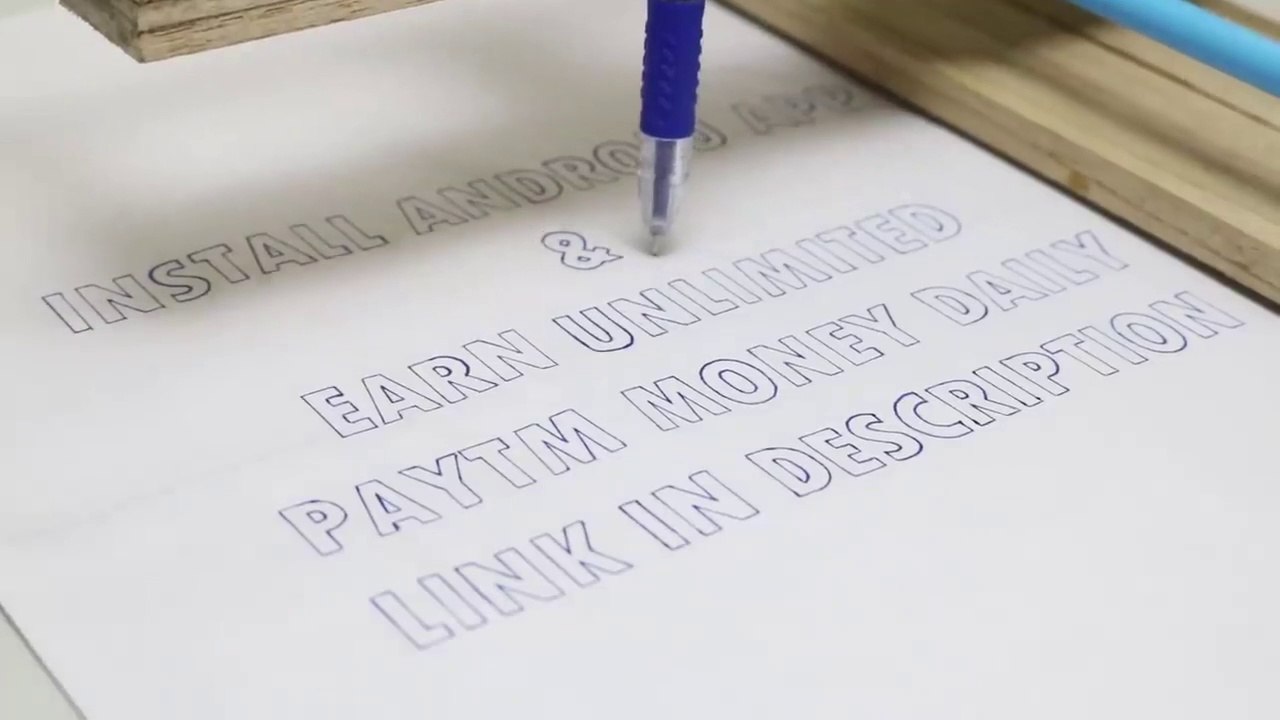 INSTALL ANDROID APP
&
EARN UNLIMITED
PAYTM MONEY DAILY
LINK IN DESCRIPTION